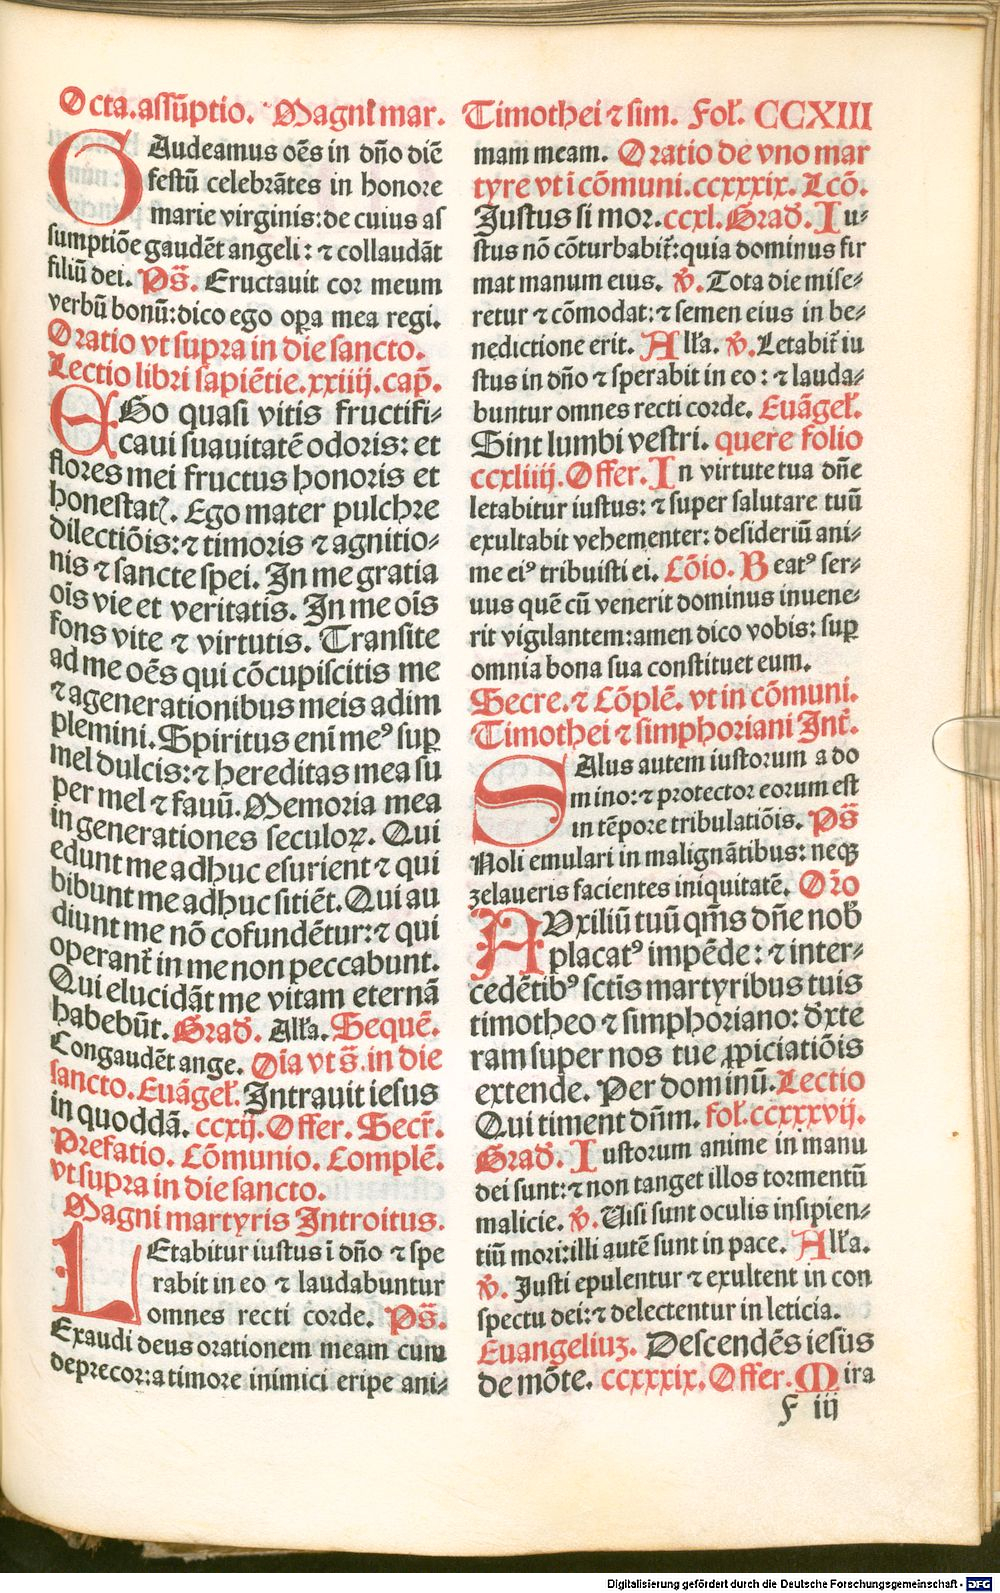 Octa.assũptio. Magni mar. Timothei ⁊ sim. Fol. CCXIII
GAudeamus oẽs in dño diẽ
festũ celebrãtes in honore
marie virginis: de cuius as
sumptiõe gaudẽt angeli: ⁊ collaudãt
filiũ dei. Ps̃. Eructauit cor meum
verbũ bonũ: dico ego oꝑa mea regi.
Oratio vt supra in die sancto.
Lectio libri sapiẽtie. xxiiij. cap̃.
EGo quasi vitis fructifi-
caui suauitatẽ odoris: et
flores mei fructus honoris et
honestatꝭ. Ego mater pulchre
dilectiõis: ⁊ timoris ⁊ agnitio-
nis ⁊ sancte spei. In me gratia
oĩs vie et veritatis. In me oĩs
fons vite ⁊ virtutis. Transite
ad me oẽs qui cõcupiscitis me
⁊ a generationibus meis adim
plemini. Spiritus eni meꝰ suꝑ
mel dulcis: ⁊ hereditas mea su
per mel ⁊ fauũ. Memoria mea
in generationes seculoꝝ. Qui
edunt me adhuc esurient ⁊ qui
bibunt me adhuc sitiẽt. Qui au
diunt me nõ cofundẽtur: ⁊ qui
operant̃ in me non peccabunt.
Qui elucidãt me vitam eternã
habebũt. Grad̃. Alła. Sequẽ.
Congaudẽt ange. Oĩa vt s̃. in die
sancto. Euãgeł. Intrauit iesus
in quoddã. ccxij. Offer. Secr̃.
Prefatio. Cõmunio. Complẽ.
vt supra in die sancto.
Magni martyris Introitus.
LEtabitur iustus ĩ dño ⁊ spe
rabit in eo ⁊ laudabuntur
omnes recti corde. Ps̃.
Exaudi deus orationem meam cum
deprecor: a timore inimici eripe ani-
mam meam. Oratio de vno mar
tyre vt ĩ cõmuni. ccxxxix. Lcõ.
Justus si mor. ccxl. Grad̃. Iu-
stus nõ cõturbabit̃: quia dominus fir
mat manum eius. ℣. Tota die mise-
retur ⁊ cõmodat: ⁊ semen eius in be-
nedictione erit. Alła. ℣. Letabit̃ iu
stus in dño ⁊ sperabit in eo: ⁊ lauda-
buntur omnes recti corde. Euãgeł.
Sint lumbi vestri. quere folio
ccxliiij. Offer. In virtute tua dñe
letabitur iustus: ⁊ super salutare tuũ
exultabit vehementer: desideriũ ani-
me eiꝰ tribuisti ei. Cõio. Beatꝰ ser-
uus quẽ cũ venerit dominus inuene-
rit vigilantem: amen dico vobis: suꝑ
omnia bona sua constituet eum.
Secre. ⁊ Cõplẽ. vt in cõmuni.
Timothei ⁊ simphoriani Int̃.
SAlus autem iustorum a do
mino: ⁊ protector eorum est
in tẽpore tribulatiõis. Ps̃
Noli emulari in malignãtibus: neqꝫ
zelaueris facientes iniquitatẽ. Or̃o
AUxiliũ tuũ qm̃s dñe nob̃
placatꝰ impẽde: ⁊ inter-
cedẽtibꝰ sctĩs martyribus tuis
timotheo ⁊ simphoriano: dẽxte
ram super nos tue ꝓpiciatiõis
extende. Per dominũ. Lectio
Qui timent dñm. foł. ccxxxvij.
Grad̃. Iustorum anime in manu
dei sunt: ⁊ non tanget illos tormentũ
malicie. ℣. Uisi sunt oculis insipien-
tiũ mori: illi autẽ sunt in pace. Alła.
℣. Justi epulentur ⁊ exultent in con
spectu dei: ⁊ delectentur in leticia.
Euangeliuꝫ. Descendẽs iesus
de mõte. ccxxxix. Offer. Mira
F iij
Digitalisierung gefördert durch die Deutsche Forschungsgemeinschaft - DFG